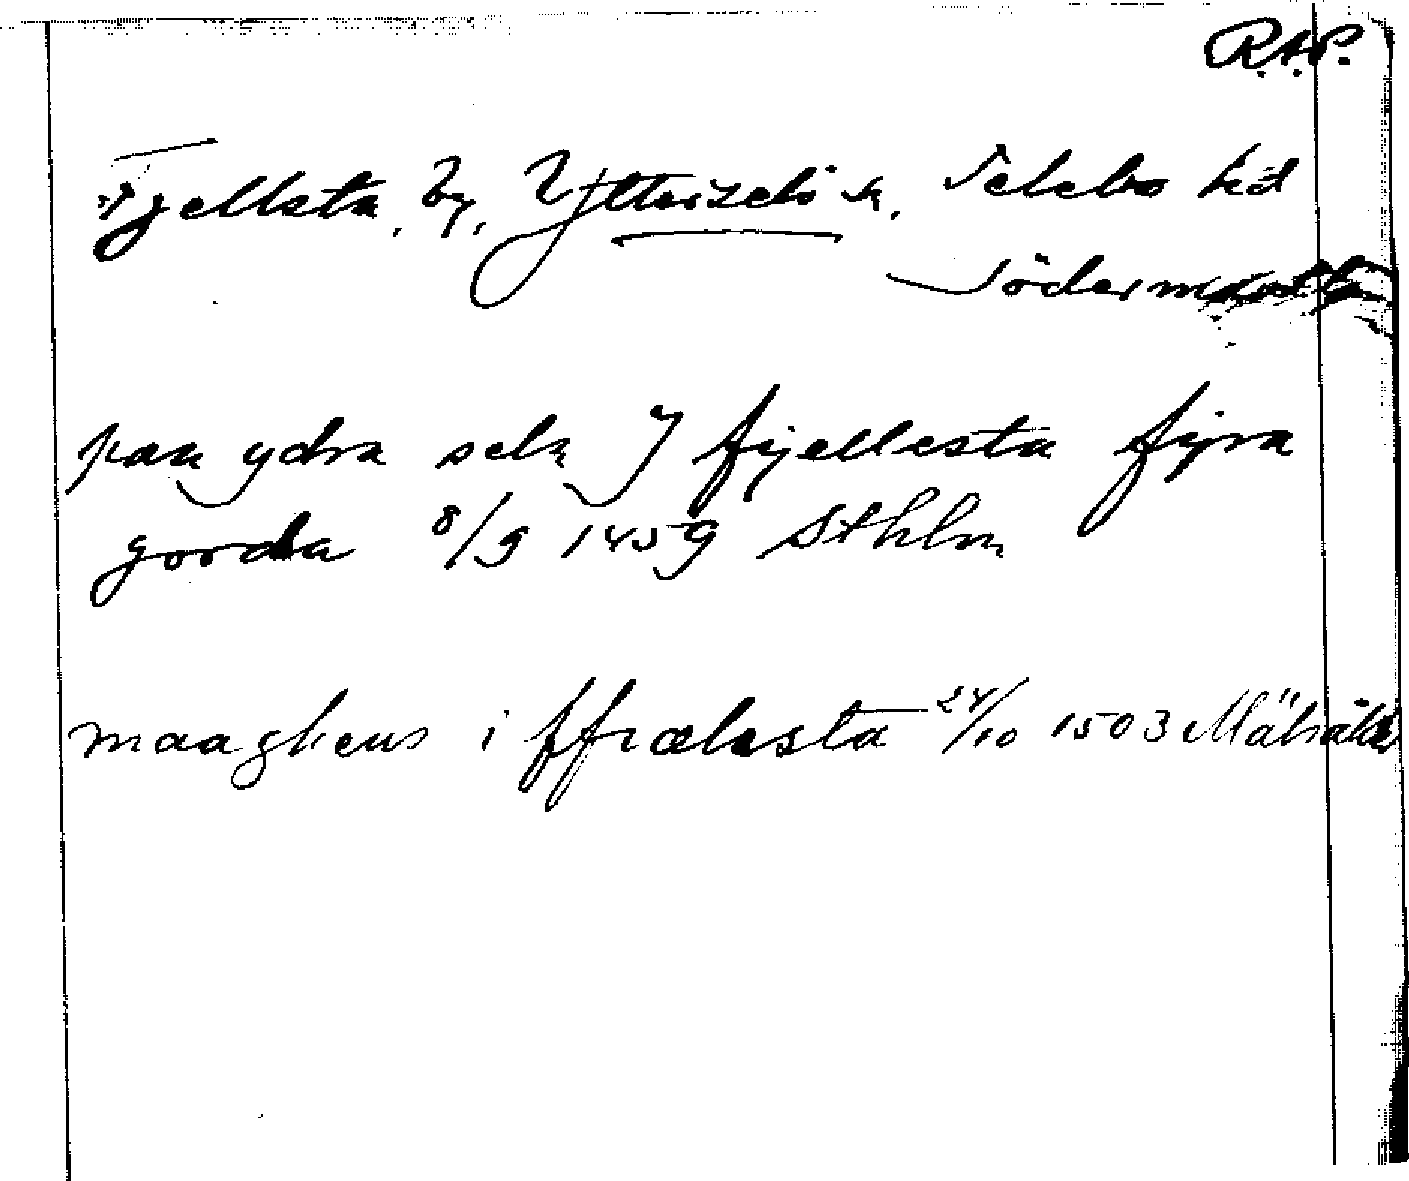 R.A.P.
Fjellsta, by, Ytterselö sn, Selebo hd
Södermanland
paa ydra sela J fijellesta fyra
gorda 8/9 1459 Sthlm
maaghens i ffrælesta 24/10 1503 Mälsåker